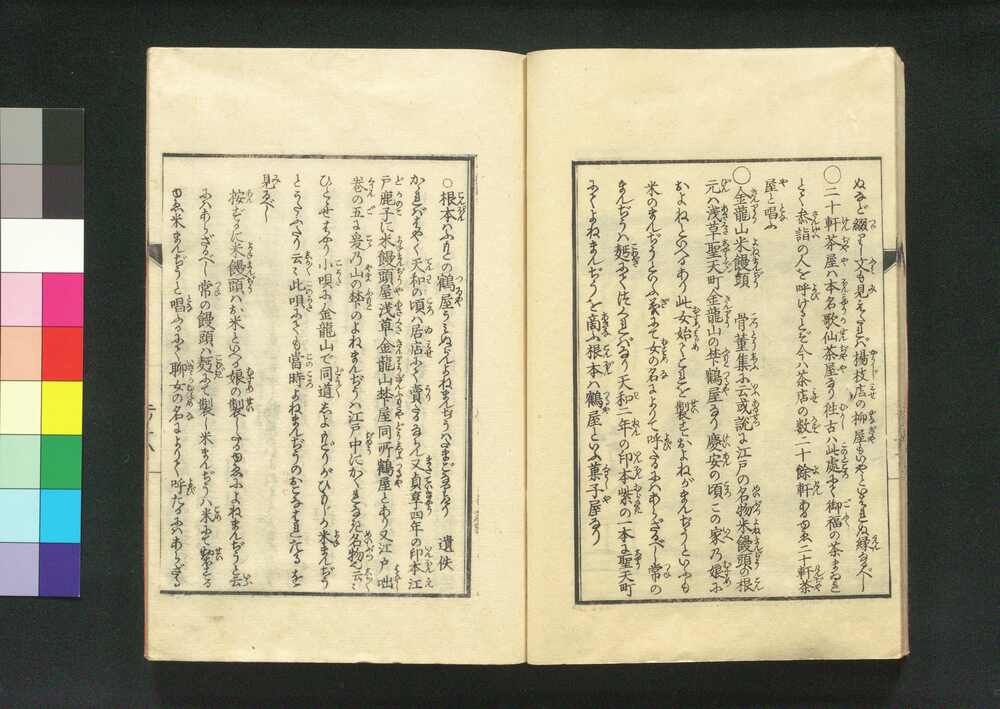 ぬなど綴りし文も見えたれば揚枝店の柳屋もいやといはれぬ縁なるべし
〇二十軒茶屋ハ本名歌仙茶屋なり往古ハ此處にて御福の茶まゐれ
とて参詣の人を呼けるとぞ今ハ茶店の数二十餘軒あるゆゑ二十軒茶
屋と唱ふ
〇金龍山米饅頭 骨董集に云或説に江戸の名物米饅頭の根
元ハ浅草聖天町金龍山の梺鶴屋なり慶安の頃この家乃娘に
およねといへるあり此女始てこれを製せしおよねがまんぢうといふも
米のまんぢうといふ義にて女の名によりて呼たるにハあらざるべし常の
まんぢうハ麺にてつくればなり天和二年の印本紫の一本に聖天町
にてよねまんぢうを商ふ根本ハ鶴屋といふ菓子屋なり
〇根本ハふもとの鶴屋うみぬらんよねまんぢうハたまごなるなり 遺佚
かゝればはやく天和の頃ハ居店にて賣たるならん又貞享四年の印本江
戸鹿子に米饅頭屋浅草金龍山梺屋同所鶴屋とあり又江戸咄
巻の五に爰乃山の梺のよねまんぢうハ江戸中にかくれなき名物云々
ひとせはやり小唄に金龍山で同道しよかどうがひもじか米まんぢう
とうたふたり云々此唄にても當時よねまんぢうのおこなはれたるを
見るべし
按ずるに米饅頭ハお米といへる娘の製したるゆゑによねまんぢうと云
にハあらざるべし常の饅頭ハ麺にて製し米まんぢうハ米にて製する
ゆゑ米まんぢうと唱ふるにて聊女の名によりて呼たるにハあらざる